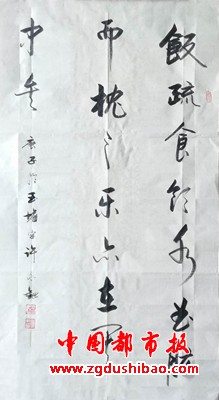 飯疏食飲水曲肱
而枕之乐亦在其
中矣
庚子
许
中國都市报
www.zgdushibao.com